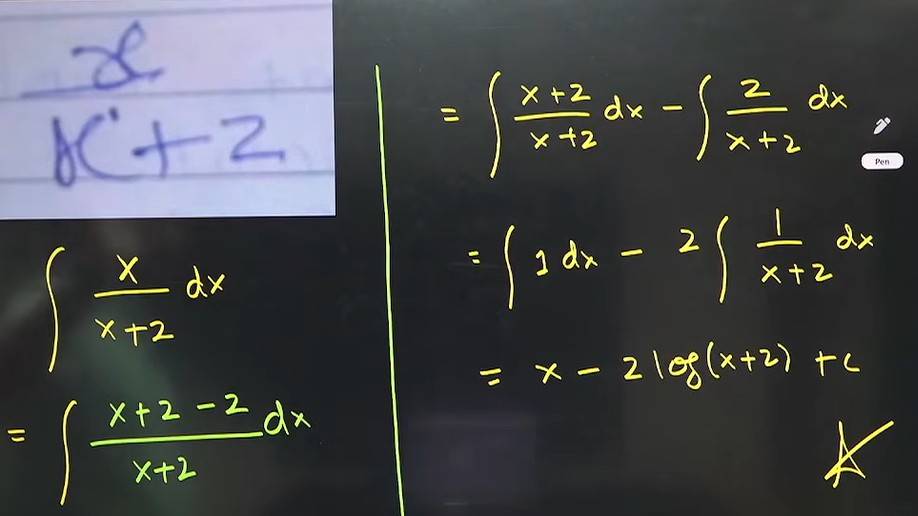 x
x + 2
∫ x/(x+2) dx
= ∫ (x+2-2)/(x+2) dx
= ∫ (x+2)/(x+2) dx - ∫ 2/(x+2) dx
= ∫ 1 dx - 2 ∫ 1/(x+2) dx
= x - 2 log(x+2) + c
Pen